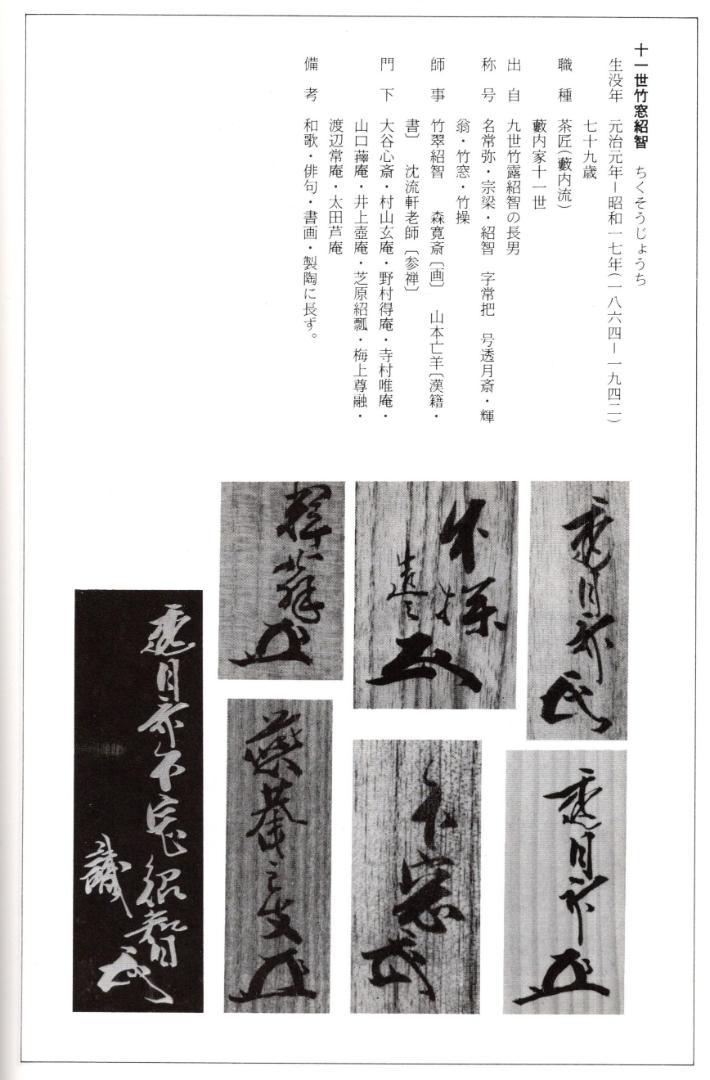 十一世竹窓紹智　ちくそうじょうち
生没年　元治元年ー昭和一七年(一八六四ー一九四二)
七十九歳
職種　茶匠(藪内流)
藪内家十一世
出自　九世竹露紹智の長男
称号　名常弥・宗梁・紹智　字常把　号透月斎・輝
翁・竹窓・竹操
師事　竹翠紹智　森寛斎〔画〕　山本亡羊〔漢籍・
書〕　沈流軒老師〔参禅〕
門下　大谷心斎・村山玄庵・野村得庵・寺村唯庵・
山口庵・井上壺庵・芝原紹瓢・梅上尊融・
渡辺常庵・太田芦庵
備考　和歌・俳句・書画・製陶に長ず。
透月斎
竹操
輝翁
透月斎
竹窓
透月斎竹窓紹智
識